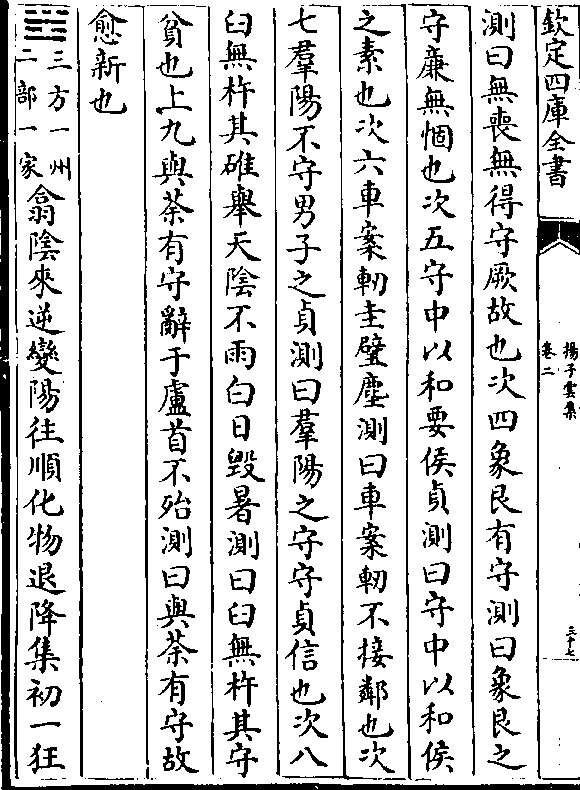 欽定四庫全書
揚子雲集
卷二
三十七
測曰無喪無得守厥故也次四象艮有守測曰象艮之
守廉無個也次五守中以和要侯貞測曰守中以和侯
之素也次六車案軔圭璧塵測曰車案軔不接鄰也次
七羣陽不守男子之貞測曰羣陽之守守貞信也次八
臼無杵其碓舉天陰不雨白日毀暑測曰臼無杵其守
貧也上九與荼有守辭于盧首不殆測曰與荼有守故
愈新也
三方一州
二部一家
翕陰來逆變陽往順化物退降集初一狂